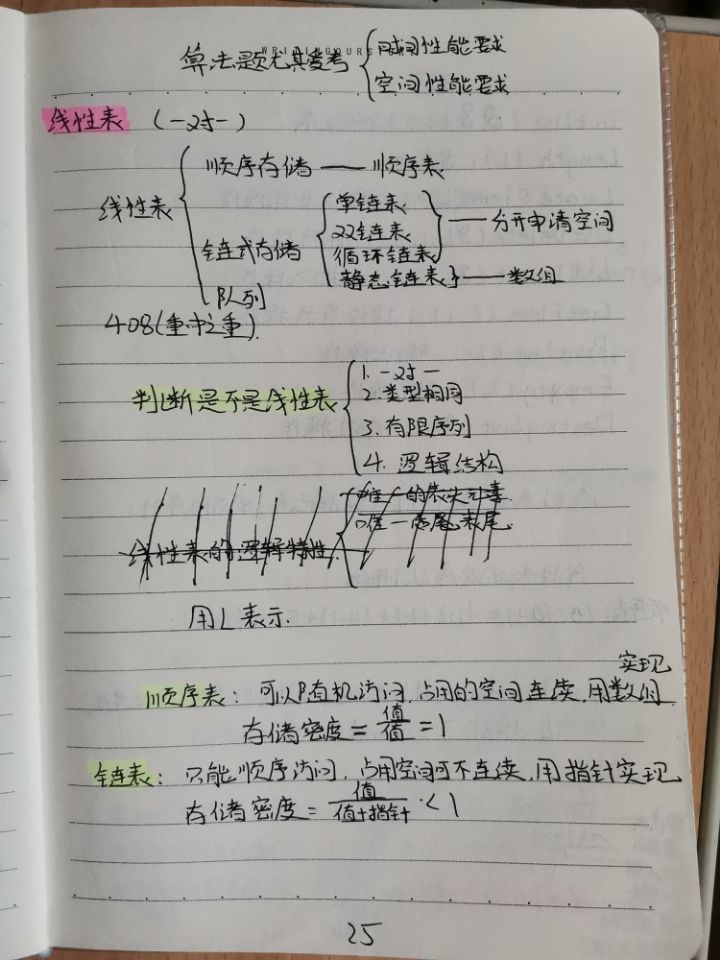 算法题尤其爱考 时间性能要求
空间性能要求
线性表 (一对一)
顺序存储 —— 顺序表
线性表
链式存储
单链表
双链表
循环链表
—— 分开申请空间
静态链表 —— 数组
队列
408(重中之重)
判断是不是线性表
1. 一对一
2. 类型相同
3. 有限序列
4. 逻辑结构
唯一的表头元素
线性表的逻辑特性
用L表示.
顺序表: 可以随机访问, 占用的空间连续, 用数组实现
存储密度 = 值/值 = 1
链表: 只能顺序访问, 占用空间可不连续, 用指针实现
存储密度 = 值/值+指针 < 1
25